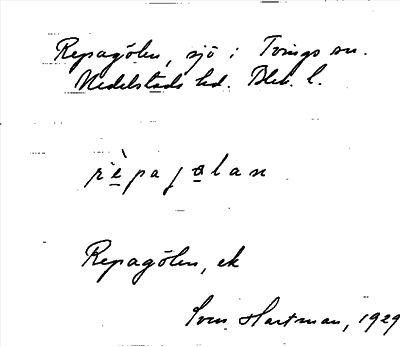 Repagölen, sjö i Tvings sn.
Medelstads hd. Blek. l.
rèpagölan
Repagölen, ek
Sven Hartman, 1929